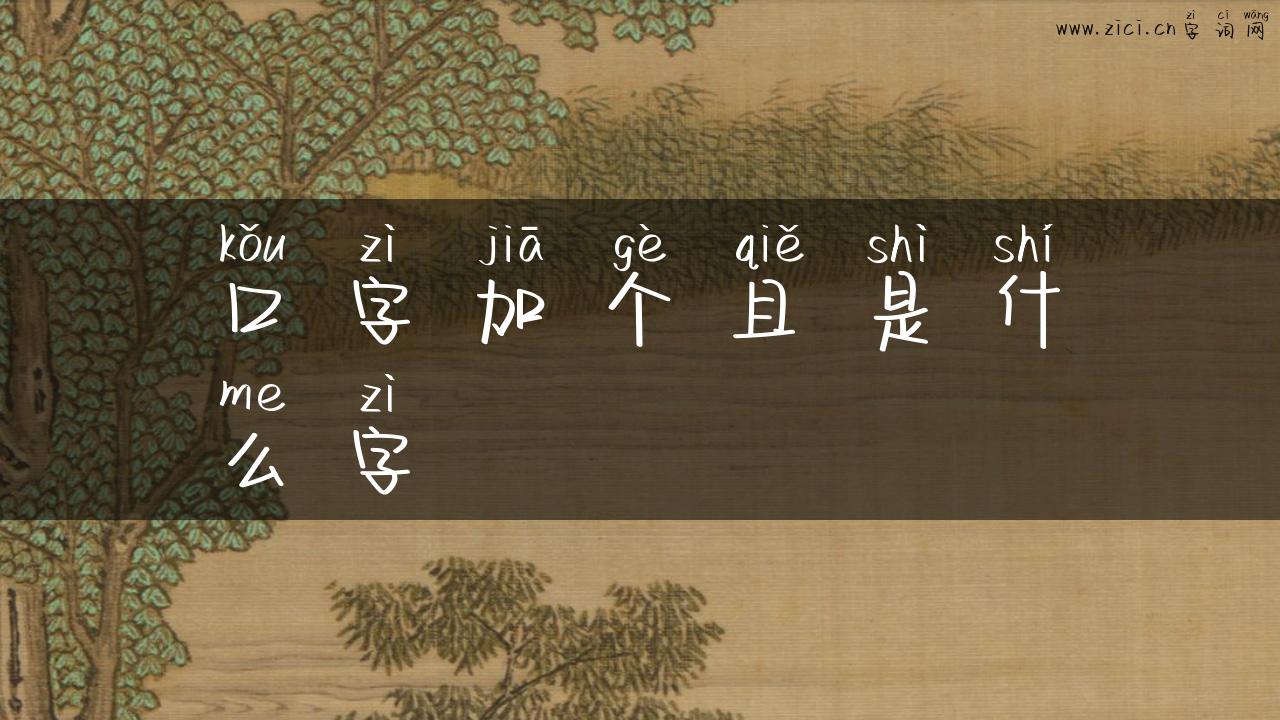 zì cí wǎng
www.zici.cn 字词网
kǒu zì jiā gè qiě shì shí
口字加个且是什
me zì
么字